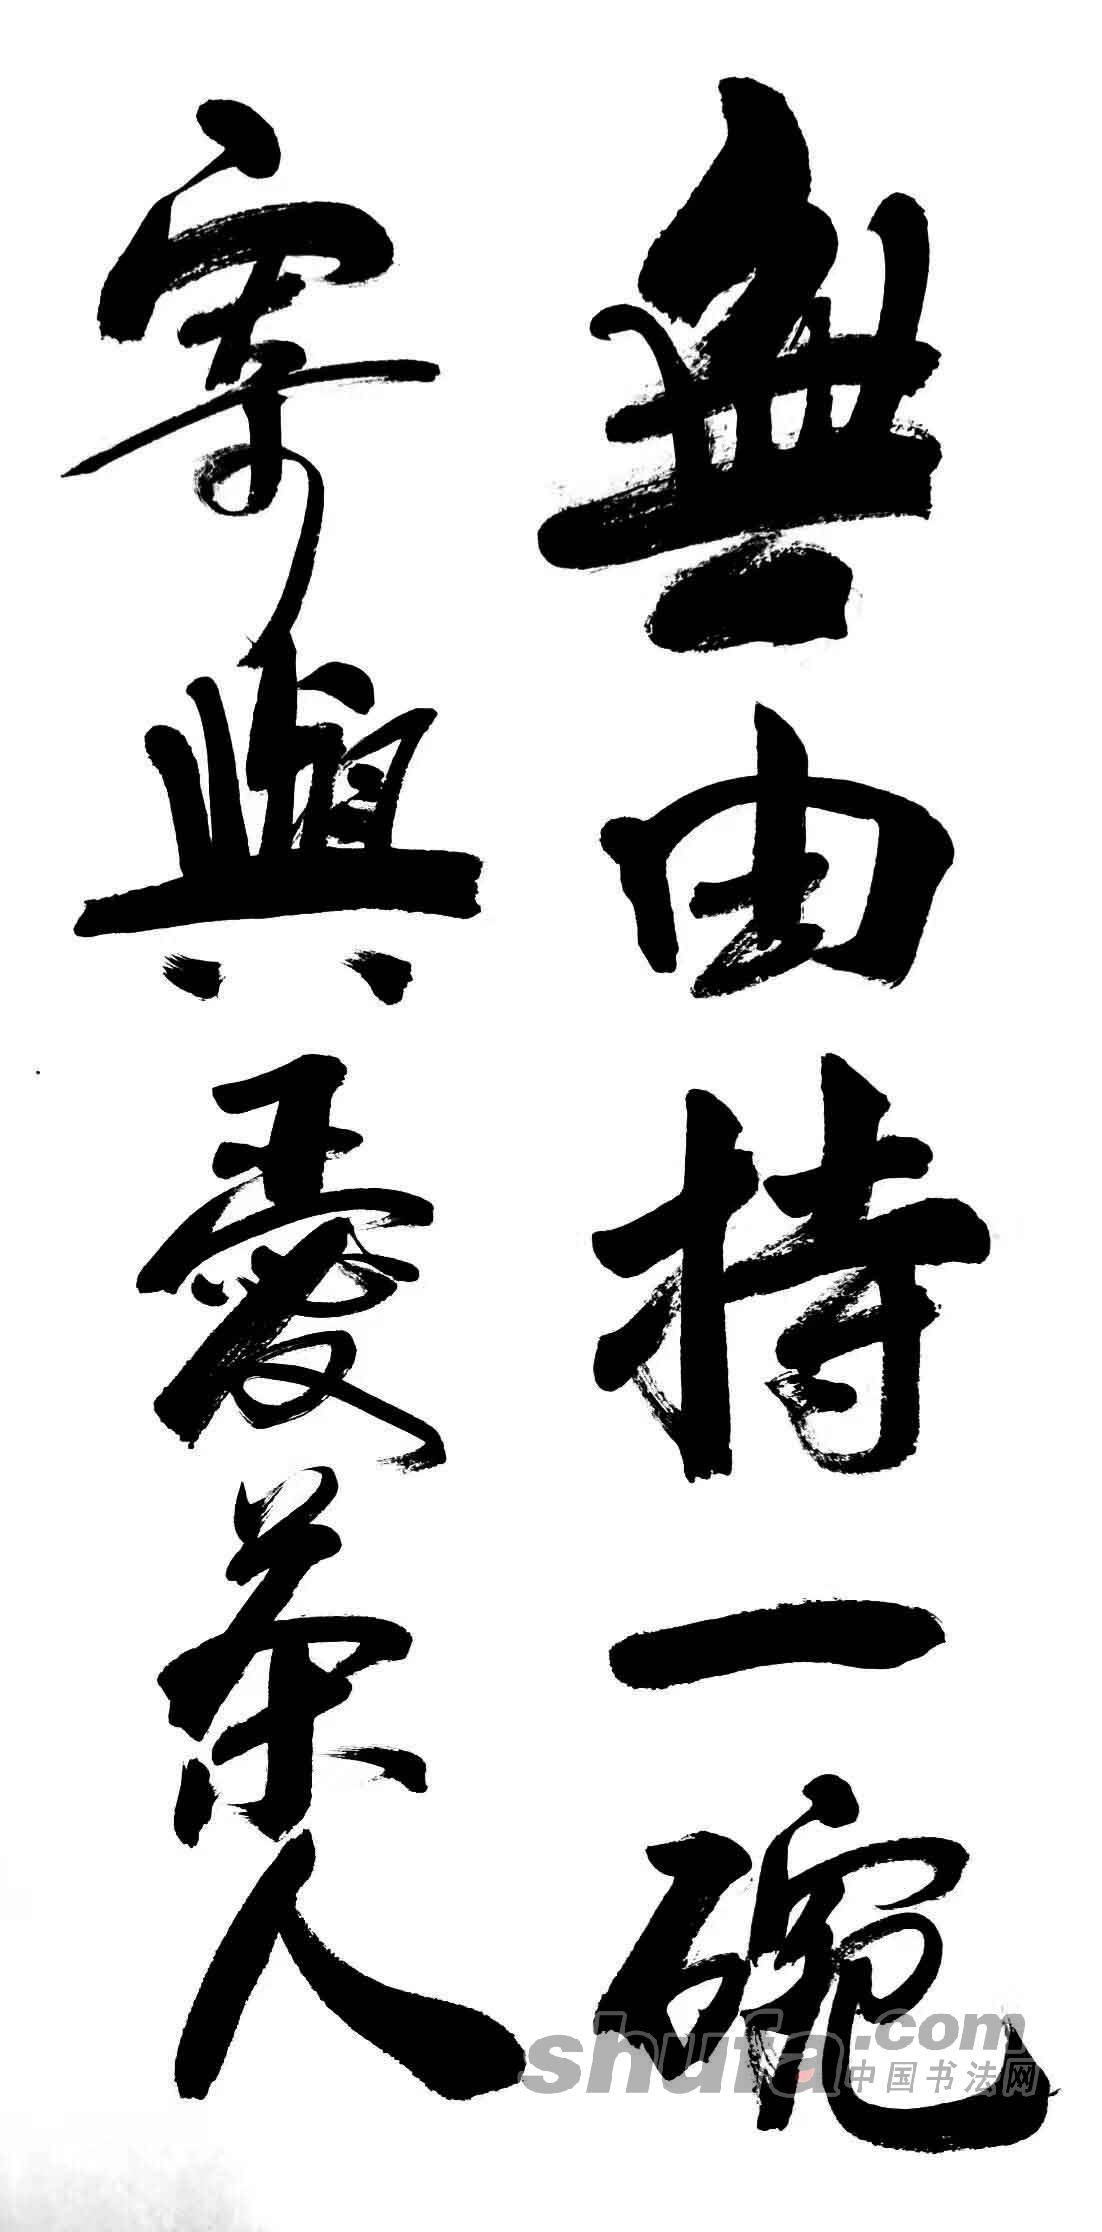 無由持一碗
寄與愛茶人
shufa.com
中国书法网